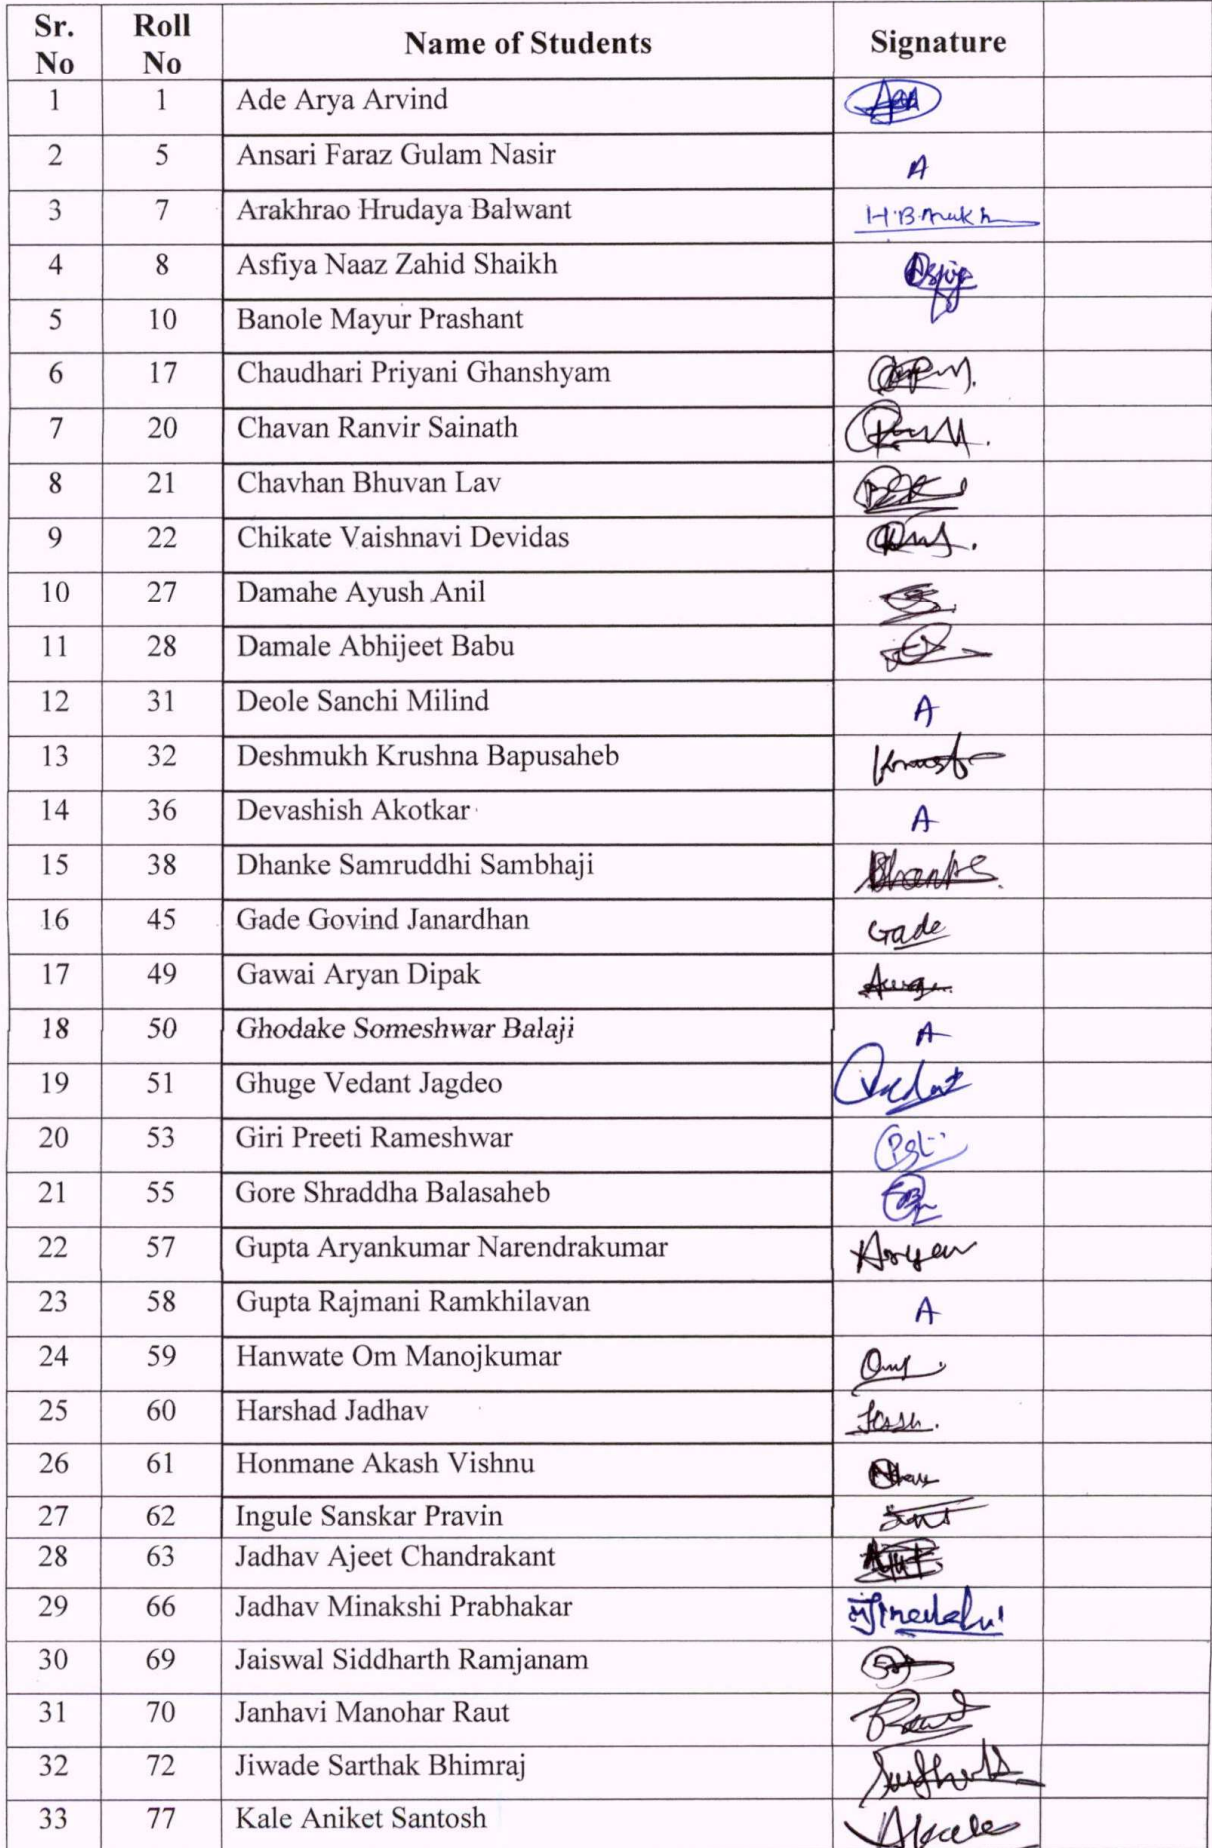 Sr. No Roll No Name of Students Signature
1 1 Ade Arya Arvind
2 5 Ansari Faraz Gulam Nasir A
3 7 Arakhrao Hrudaya Balwant H.B.Arakh
4 8 Asfiya Naaz Zahid Shaikh
5 10 Banole Mayur Prashant
6 17 Chaudhari Priyani Ghanshyam
7 20 Chavan Ranvir Sainath
8 21 Chavhan Bhuvan Lav
9 22 Chikate Vaishnavi Devidas
10 27 Damahe Ayush Anil
11 28 Damale Abhijeet Babu
12 31 Deole Sanchi Milind A
13 32 Deshmukh Krushna Bapusaheb
14 36 Devashish Akotkar A
15 38 Dhanke Samruddhi Sambhaji
16 45 Gade Govind Janardhan Gade
17 49 Gawai Aryan Dipak
18 50 Ghodake Someshwar Balaji A
19 51 Ghuge Vedant Jagdeo
20 53 Giri Preeti Rameshwar
21 55 Gore Shraddha Balasaheb
22 57 Gupta Aryankumar Narendrakumar Aryan
23 58 Gupta Rajmani Ramkhilavan A
24 59 Hanwate Om Manojkumar
25 60 Harshad Jadhav
26 61 Honmane Akash Vishnu
27 62 Ingule Sanskar Pravin
28 63 Jadhav Ajeet Chandrakant
29 66 Jadhav Minakshi Prabhakar
30 69 Jaiswal Siddharth Ramjanam
31 70 Janhavi Manohar Raut
32 72 Jiwade Sarthak Bhimraj
33 77 Kale Aniket Santosh